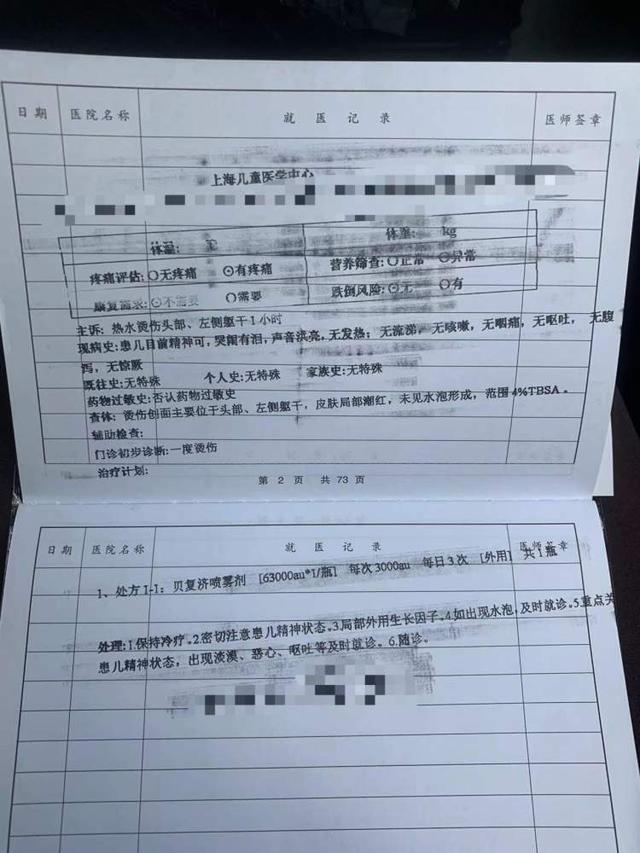 日期 医院名称 就 医 记 录 医师签章
上海儿童医学中心
体温: ℃ 体重: kg
疼痛评估:○无疼痛 ⊙有疼痛 营养筛查:○正常 ⊙异常
康复需求:⊙不需要 ○需要 跌倒风险:⊙无 ○有
主诉: 热水烫伤头部、左侧躯干1小时
现病史:患儿目前精神可,哭闹有泪,声音洪亮,无发热; 无流涕, 无咳嗽, 无咽痛, 无呕吐, 无腹
泻, 无惊厥
既往史:无特殊 个人史:无特殊 家族史:无特殊
药物过敏史:否认药物过敏史
查体: 烫伤创面主要位于头部、左侧躯干, 皮肤局部潮红, 未见水泡形成, 范围4%TBSA。
辅助检查:
门诊初步诊断:一度烫伤
治疗计划:
第 2 页 共 73 页
日期 医院名称 就 医 记 录 医师签章
1、处方1-1: 贝复济喷雾剂 [63000au*1/瓶] 每次3000au 每日3次 [外用] 共1瓶
处理:1.保持冷疗.2.密切注意患儿精神状态.3.局部外用生长因子.4.如出现水泡,及时就诊.5.重点关
患儿精神状态, 出现淡漠、恶心、呕吐等及时就诊。6.随诊。